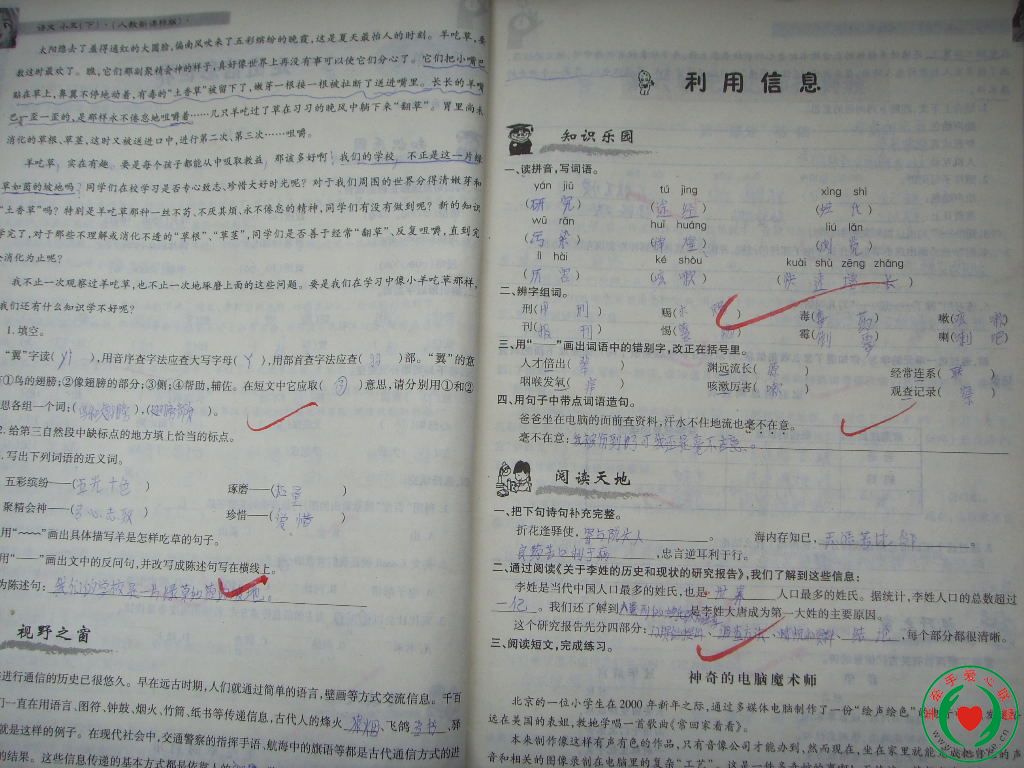 语文 小五(下)·(人教新课标版)·
太阳隐去了羞得通红的大圆脸,偏南风吹来了五彩缤纷的晚霞,这是夏天最怡人的时刻。羊吃草,要
数这时最欢了。瞧,它们那副聚精会神的样子,真好像世界上再没有事可以使它们分心了。它们把小嘴巴
贴在草上,鼻翼不停地动着,有毒的“土香草”被留下了,嫩芽一根接一根被扯断了送进嘴里。长长的羊嘴
巴一歪一歪的,是那样永不倦怠地咀嚼着……几只羊吃过了草在习习的晚风中躺下来“翻草”。胃里尚未
消化的草根、草茎,这时又被送进口中,进行第二次、第三次……咀嚼。
羊吃草,实在有趣。要是每个孩子都能从中吸取教益,那该多好啊!我们的学校,不正是这一片绿
草如茵的坡地吗?同学们在校学习是否专心致志、珍惜大好时光呢?对于我们周围的世界分得清嫩芽和
“土香草”吗?特别是羊吃草那种一丝不苟、不厌其烦,永不倦怠的精神,同学们有没有做到呢?新的知识
学完了,对于那些不理解或消化不透的“草根”、“草茎”,同学们是否善于经常“翻草”、反复咀嚼,直到完
消化为止呢?
我不止一次观察过羊吃草,也不止一次地琢磨上面的这些问题。要是我们在学习中像小羊吃草那样,
我们还有什么知识学不好呢?
1. 填空。
“翼”字读(yì),用音序查字法应查大写字母(Y),用部首查字法应查(羽)部。“翼”的意
有①鸟的翅膀;②像翅膀的部分;③侧;④帮助、辅佐。在短文中它应取(③)意思,请分别用①和②
思各组一个词:( ),( )。
2. 给第三自然段中缺标点的地方填上恰当的标点。
写出下列词语的近义词。
五彩缤纷——(五光十色) 琢磨——( )
聚精会神——(专心志致) 珍惜——(爱惜)
用“~~~”画出具体描写羊是怎样吃草的句子。
用“——”画出文中的反问句,并改写成陈述句写在横线上。
为陈述句:我们的学校是一片绿草如茵的坡地。
视野之窗
进行通信的历史已很悠久。早在远古时期,人们就通过简单的语言,壁画等方式交流信息。千百
们一直在用语言、图符、钟鼓、烟火、竹筒、纸书等传递信息,古代人的烽火狼烟、飞鸽传书、驿
就是这样的例子。在现代社会中,交通警察的指挥手语、航海中的旗语等都是古代通信方式的进
的结果。这些信息传递的基本方式都是依靠人的
利用信息
知识乐园
一、读拼音,写词语。
yán jiū tú jìng xìng shì
(研究) (途经) (姓氏)
wū rǎn huī huáng liú lǎn
(污染) (辉煌) (浏览)
lì hài ké shòu kuài shù zēng zhǎng
(厉害) (咳嗽) (快速增长)
二、辨字组词。
刑( 刑) 赐( ) 毒(毒药) 嗽(咳嗽)
刊(报刊) 惕( ) 霉( 霉) 喇(喇叭)
三、用“——”画出词语中的错别字,改正在括号里。
人才倍出(辈) 渊远流长(源) 经常连系(联)
咽喉发氧(痒) 咳激厉害(嗽) 观查记录(察)
四、用句子中带点词语造句。
爸爸坐在电脑的面前查资料,汗水不住地流也毫不在意。
毫不在意:
阅读天地
一、把下句诗句补充完整。
折花逢驿使,寄与陇头人。 海内存知己,天涯若比邻。
良药苦口利于病,忠言逆耳利于行。
二、通过阅读《关于李姓的历史和现状的研究报告》,我们了解到这些信息:
李姓是当代中国人口最多的姓氏,也是世界人口最多的姓。据统计,李姓人口的总数超过
一亿。我们还了解到 是李姓大唐成为第一大姓的主要原因。
这个研究报告先分四部分: 、 、 、结论,每个部分都很清晰。
三、阅读短文,完成练习。
神奇的电脑魔术师
北京的一位小学生在2000年新年之际,通过多媒体电脑制作了一份“绘声绘色”的电子
远在美国的表姐,教她学唱一首歌曲《常回家看看》。
本来制作像这样有声有色的作品,只有音像公司才能办到,然而现在,坐在家里就能
音和相关的图像录制在电脑里的复杂“工艺”。这是一件多奇妙的事啊!
牵手爱心联